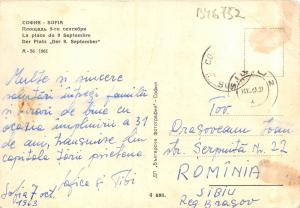 СОФИЯ - SOFIA
Площадь 9-го сентября
La place du 9 Septembre
Der Platz „Der 9. September"
A-56 1961
Multe și sincere
salutări întregii familii
și urări de bine cu
ocazia împlinirii a 31
de ani, transmise din
capitala țării prietene
Sofia 7 oct.
1963
Jofica și Tibi
ДП „Българска фотография" - София
Tov.
Orașoveanu Ioan
str. Șerpuită Nr. 22
ROMÎNIA
SIBIU
Reg. Brașov